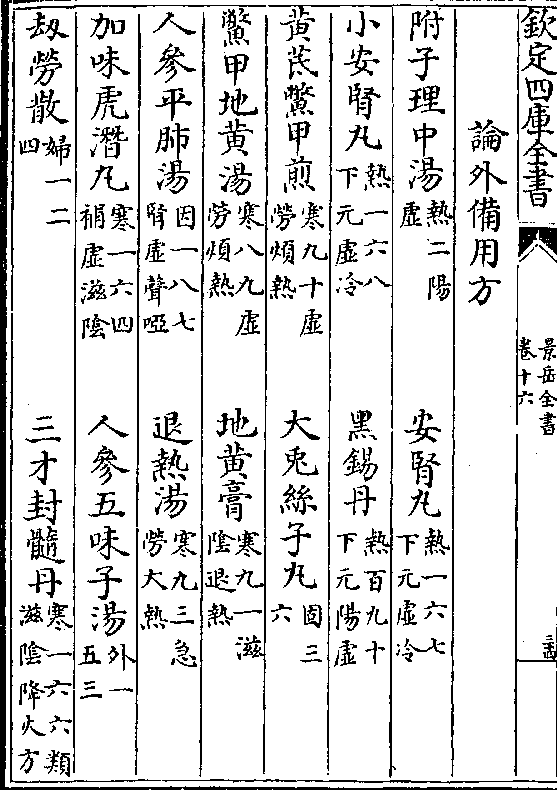 欽定四庫全書
景岳全書
卷十六
論外備用方
附子理中湯 熱二陽虛
安腎丸 熱一六七下元虛冷
小安腎丸 熱一六八下元虛冷
黑錫丹 熱百九十下元陽虛
黄芪鱉甲煎 寒九十虛勞煩熱
大兎絲子丸 固三六
鱉甲地黄湯 寒八九虛勞煩熱
地黄膏 寒九一滋陰退熱
人參平肺湯 因一八七腎虛聲啞
退熱湯 寒九三急勞大熱
加味虎潛丸 寒一六四補虛滋陰
人參五味子湯 外一五三
劫勞散 婦一二四
三才封髓丹 寒一六六類滋陰降火方